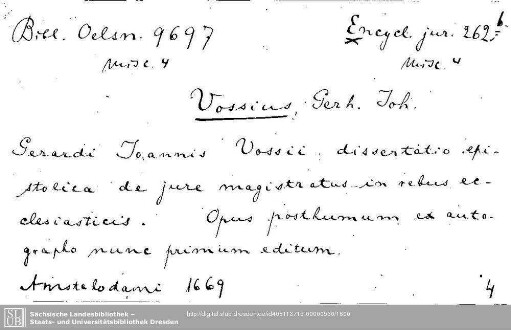 Bibl. Oelsn. 9697
misc. 4
Encycl. jur. 262,b
misc. 4
Vossius, Gerh. Joh.
Gerardi Joannis Vossii dissertatio epi-
stolica de jure magistratus in rebus ec-
clesiasticis. Opus posthumum ex auto-
grapho nunc primum editum.
Amstelodami 1669
4
SLUB
Sächsische Landesbibliothek –
Staats- und Universitätsbibliothek Dresden